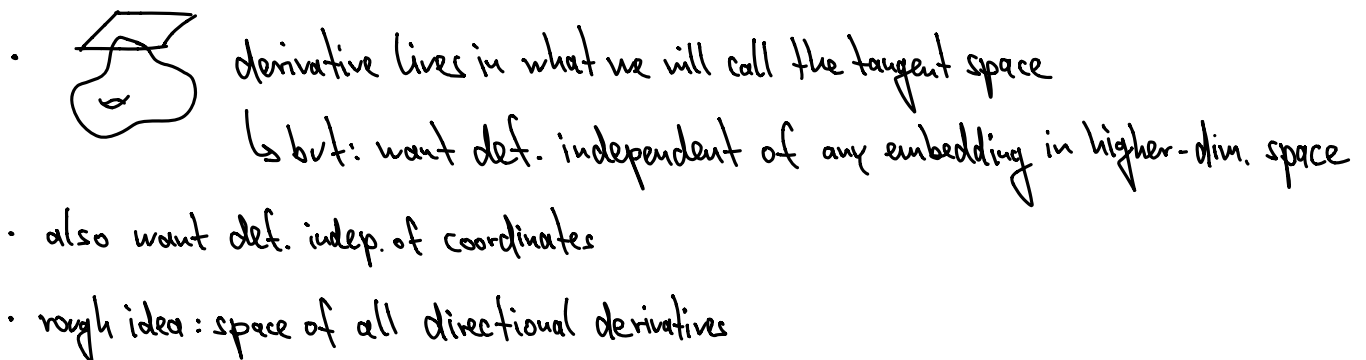 · derivative lives in what we will call the tangent space
↳ but: want def. independent of any embedding in higher-dim. space
· also want def. indep. of coordinates
· rough idea: space of all directional derivatives